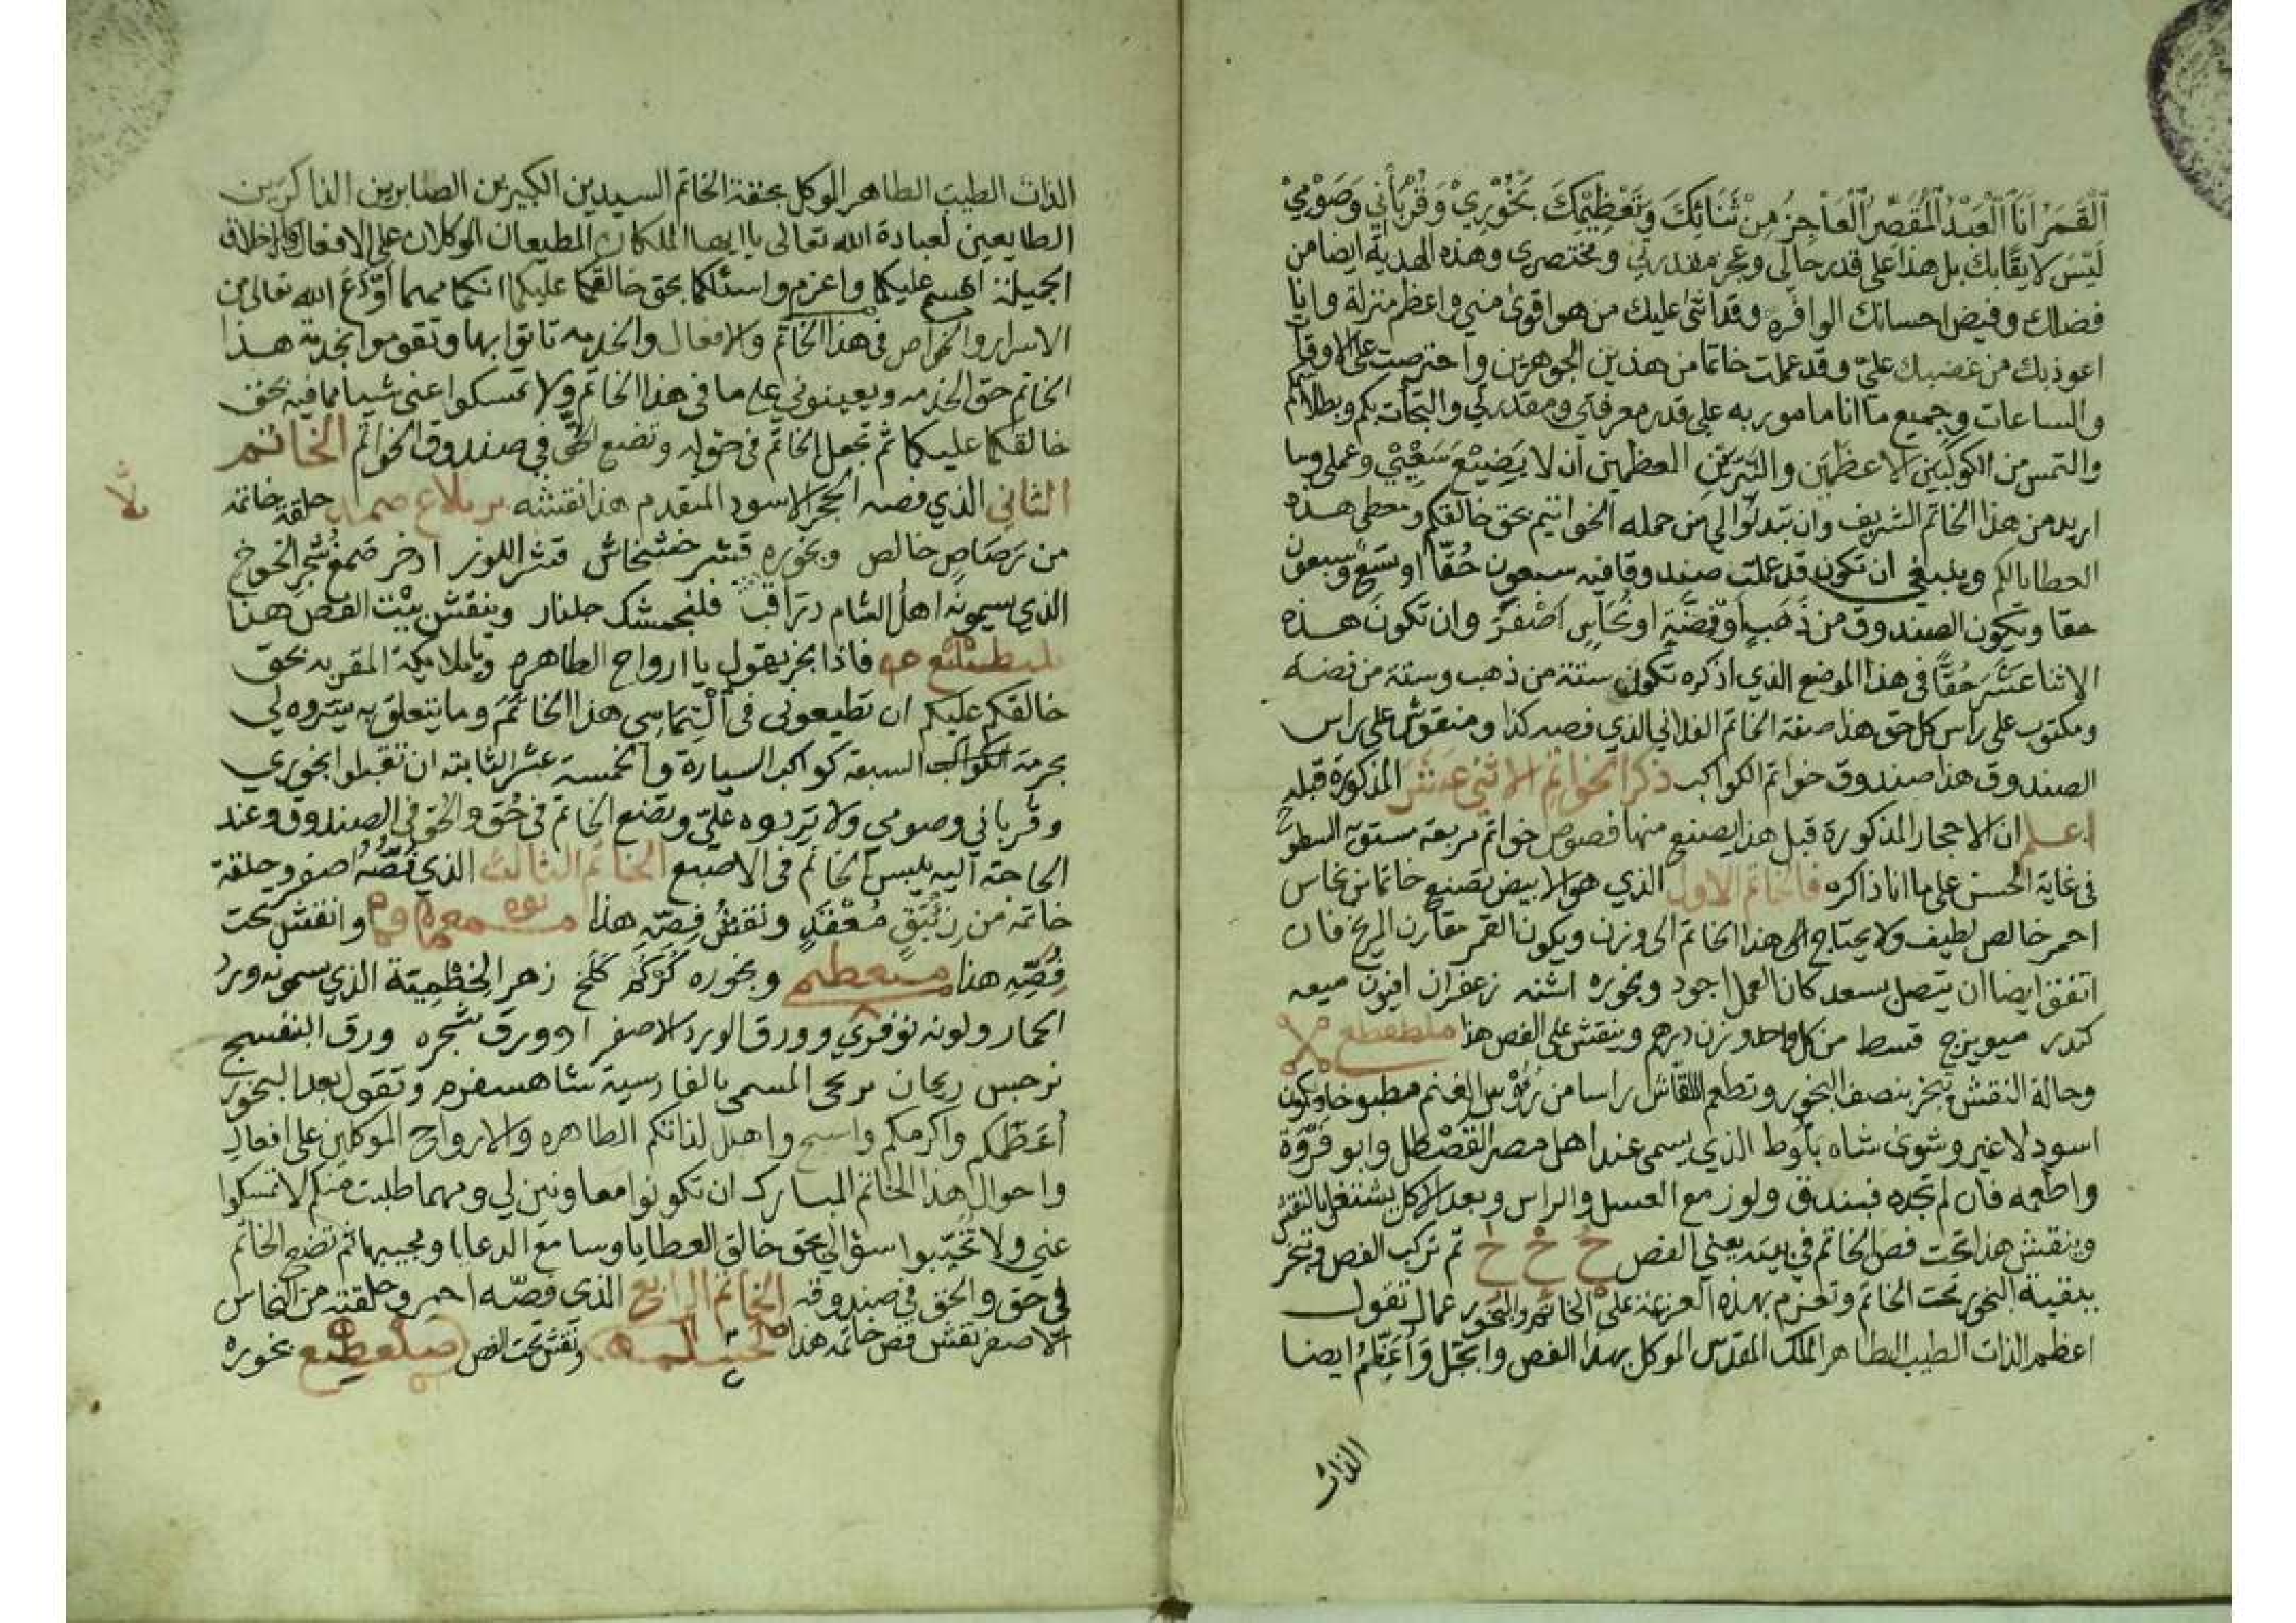 اَلْقَمَرْ اَنَا الْعَبْدُ الْمُقَصِّرُ الْعَاجِزُ مِنْ ثَنَائِكَ وَتَعْظِيْمِكَ بَخُوْرِيْ وَقُرْبَانِي وَصَوْمِيْ
لَيْسَ لا يقابك بل هذا على قدر حالي وعجز مقدرتي ومختصرى وهذه الهدية ايضا من
فضلك وفيض احسانك الوافره وقد اثنى عليك من هو اقوى مني واعظم منزلة وانا
اعوذ بك من غضبك عليّ وقد عملت خاتما من هذين الجوهرين واحترصت على الاوقات
والساعات وجميع ما انا مامور به على قدر معرفتي ومقدرتي والتجأت بكم وبطلاتكم
والتمس من الكوكبين الاعظمين والنيرين المعظمين أن لا يَضِيْعَ سَعْيِيْ وعملي وما
اريد من هذا الخاتم الشريف وان تبدلوا لي من حمله الخواتيم بحق خالقكم ومعطى هذه
العطايا لكم وينبغي ان تكون قد عملت صندوقا فيه سبعون حُقًّا او تسع وسبعون
حقا ويكون الصندوق من ذَهَبٍ أوْ فِضَّةٍ او نُحَاسٍ اَصْفَرٍ وان تكون هذه
الاثنا عشر حُقًّا في هذا الموضع الذي اذكره تكون ستة من ذهب وستة من فضه
ومكتوب على راس كل حق هذا صفة الخاتم الفلاني الذي فصه كذا ومنقوش على راس
الصندوق هذا صندوق خواتم الكواكب ذكر الخواتم الاثني عشر المذكورة قبله
اعلم ان الاحجار المذكورة قبل هذا يصنع منها فصوص خواتم مربعة مستوية السطوح
في غاية الحسن على ما انا ذاكره فالخاتم الاول الذي هو الابيض تصنع خاتما من نحاس
احمر خالص لطيف ولا يحتاج الى هذا الخاتم الى وزن ويكون القمر مقارن المريخ فان
اتفق ايضا ان يتصل بسعد كان العمل اجود وبخوره اشنه زعفران افيون ميعه
كندر ميويزج قسط من كل واحد وزن درهم وينقش على الفص هذا
وحالة النقش تبخر بنصف البخور وتطعم النقاش راسا من رُؤْسِ الغنم مطبوخا ويكون
اسود لا غير وشوى شاه بلوط الذي يسمى عند اهل مصر القَصْطَل وابو فَرْوَة
واطعمه فان لم تجده فبندق ولوز مع العسل والراس وبعد الاكل يشتغل بالنقش
وينقش هذا تحت فص الخاتم في بيته يعني الفص خ خ خ ثم تركب الفص وتبخر
ببقية البخور تحت الخاتم وتعزم بهذه العزيمة على الخاتم والبخور عمال تقول
اعظم الذات الطيب الطاهر الملك المقدس الموكل بهذا الفص وابجل وأعظم ايضا
الذات
الذات الطيب الطاهر الموكل بحقفة الخاتم السيدين الكبيرين الصابرين الذاكرين
الطايعين لعبادة الله تعالى يا ايها الملكان المطيعان الموكلان على الافعال والاخلاق
الجميلة اقسم عليكما واعزم واسئلكما بحق خالقكما عليكما انكما مهما أَوْدَعَ الله تعالى من
الاسرار والخواص في هذا الخاتم والافعال والخدمه تاتوا بها وتقوموا بخدمة هذا
الخاتم حق الخدمه ويعينوني على ما في هذا الخاتم ولا تمسكوا عني شيا مما فيه بحق
خالقكما عليكما ثم تجعل الخاتم في حق له وتضع الحق في صندوق الخواتم الخاتم
الثاني الذي فصه الحجر الاسود المتقدم هذا نقشه حلقة خاتمه
من رَصَاصٍ خالص وبخوره قشر خشخاش قشر اللوز اذخر صَمغ شجر الخوخ
الذي يسمونه اهل الشام دراقن فلنجمشك جلنار وينقش بيْت الفص هذا
فاذا بخر يقول يا ارواح الطاهره ويا ملايكة المقربه بحق
خالقكم عليكم ان تطيعوني في اَلْتِمَاسِي هذا الخاتمَ وما يتعلق به يتروه لي
بحرمة الكواكب السبعة كواكب السيارة والخمسة عشر الثابته ان تقبلوا بخوري
وقرباني وصومي ولا تردوه عليّ وتضع الخاتم في حُقٍّ والحق في الصندوق وعند
الحاجة اليه يلبس الخاتم في الاصبع الخاتم الثالث الذي فصُّه اصفر وحلقة
خاتمه من زئبقٍ مُعْقَدٍ ونقشُ فِصِّه هذا وانقش تحت
فُصِّهِ هذا وبخوره كَلَخ زهر الخطمية الذي يسمونه ورد
الحمار ولونه نوفري وورق الورد الاصفر او ورق شجره ورق البنفسج
نرجس ريحان المسمى بالفارسية شاهسفرم وتقول بعد البخور
أعظمكم واكرمكم واسبح واهلل لذاتكم الطاهره والارواح الموكلين على افعال
واحوال هذا الخاتم المبارك ان تكونوا معاونين لي ومهما طلبت منكم لا تمسكوا
عني ولا تُخَيِّبوا سؤالي بحق خالق العطايا وسامع الدعايا ومجيبها ثم تضع الخاتم
في حق والحق في صندوقه الخاتم الرابع الذي فصّه احمر وحلقته من النحاس
الاصفر نقش فص خاتمه هذا ونقش تحت الفص بخوره